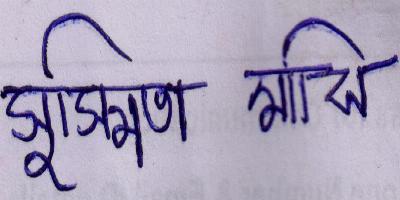 সুস্মিতা মাঝি